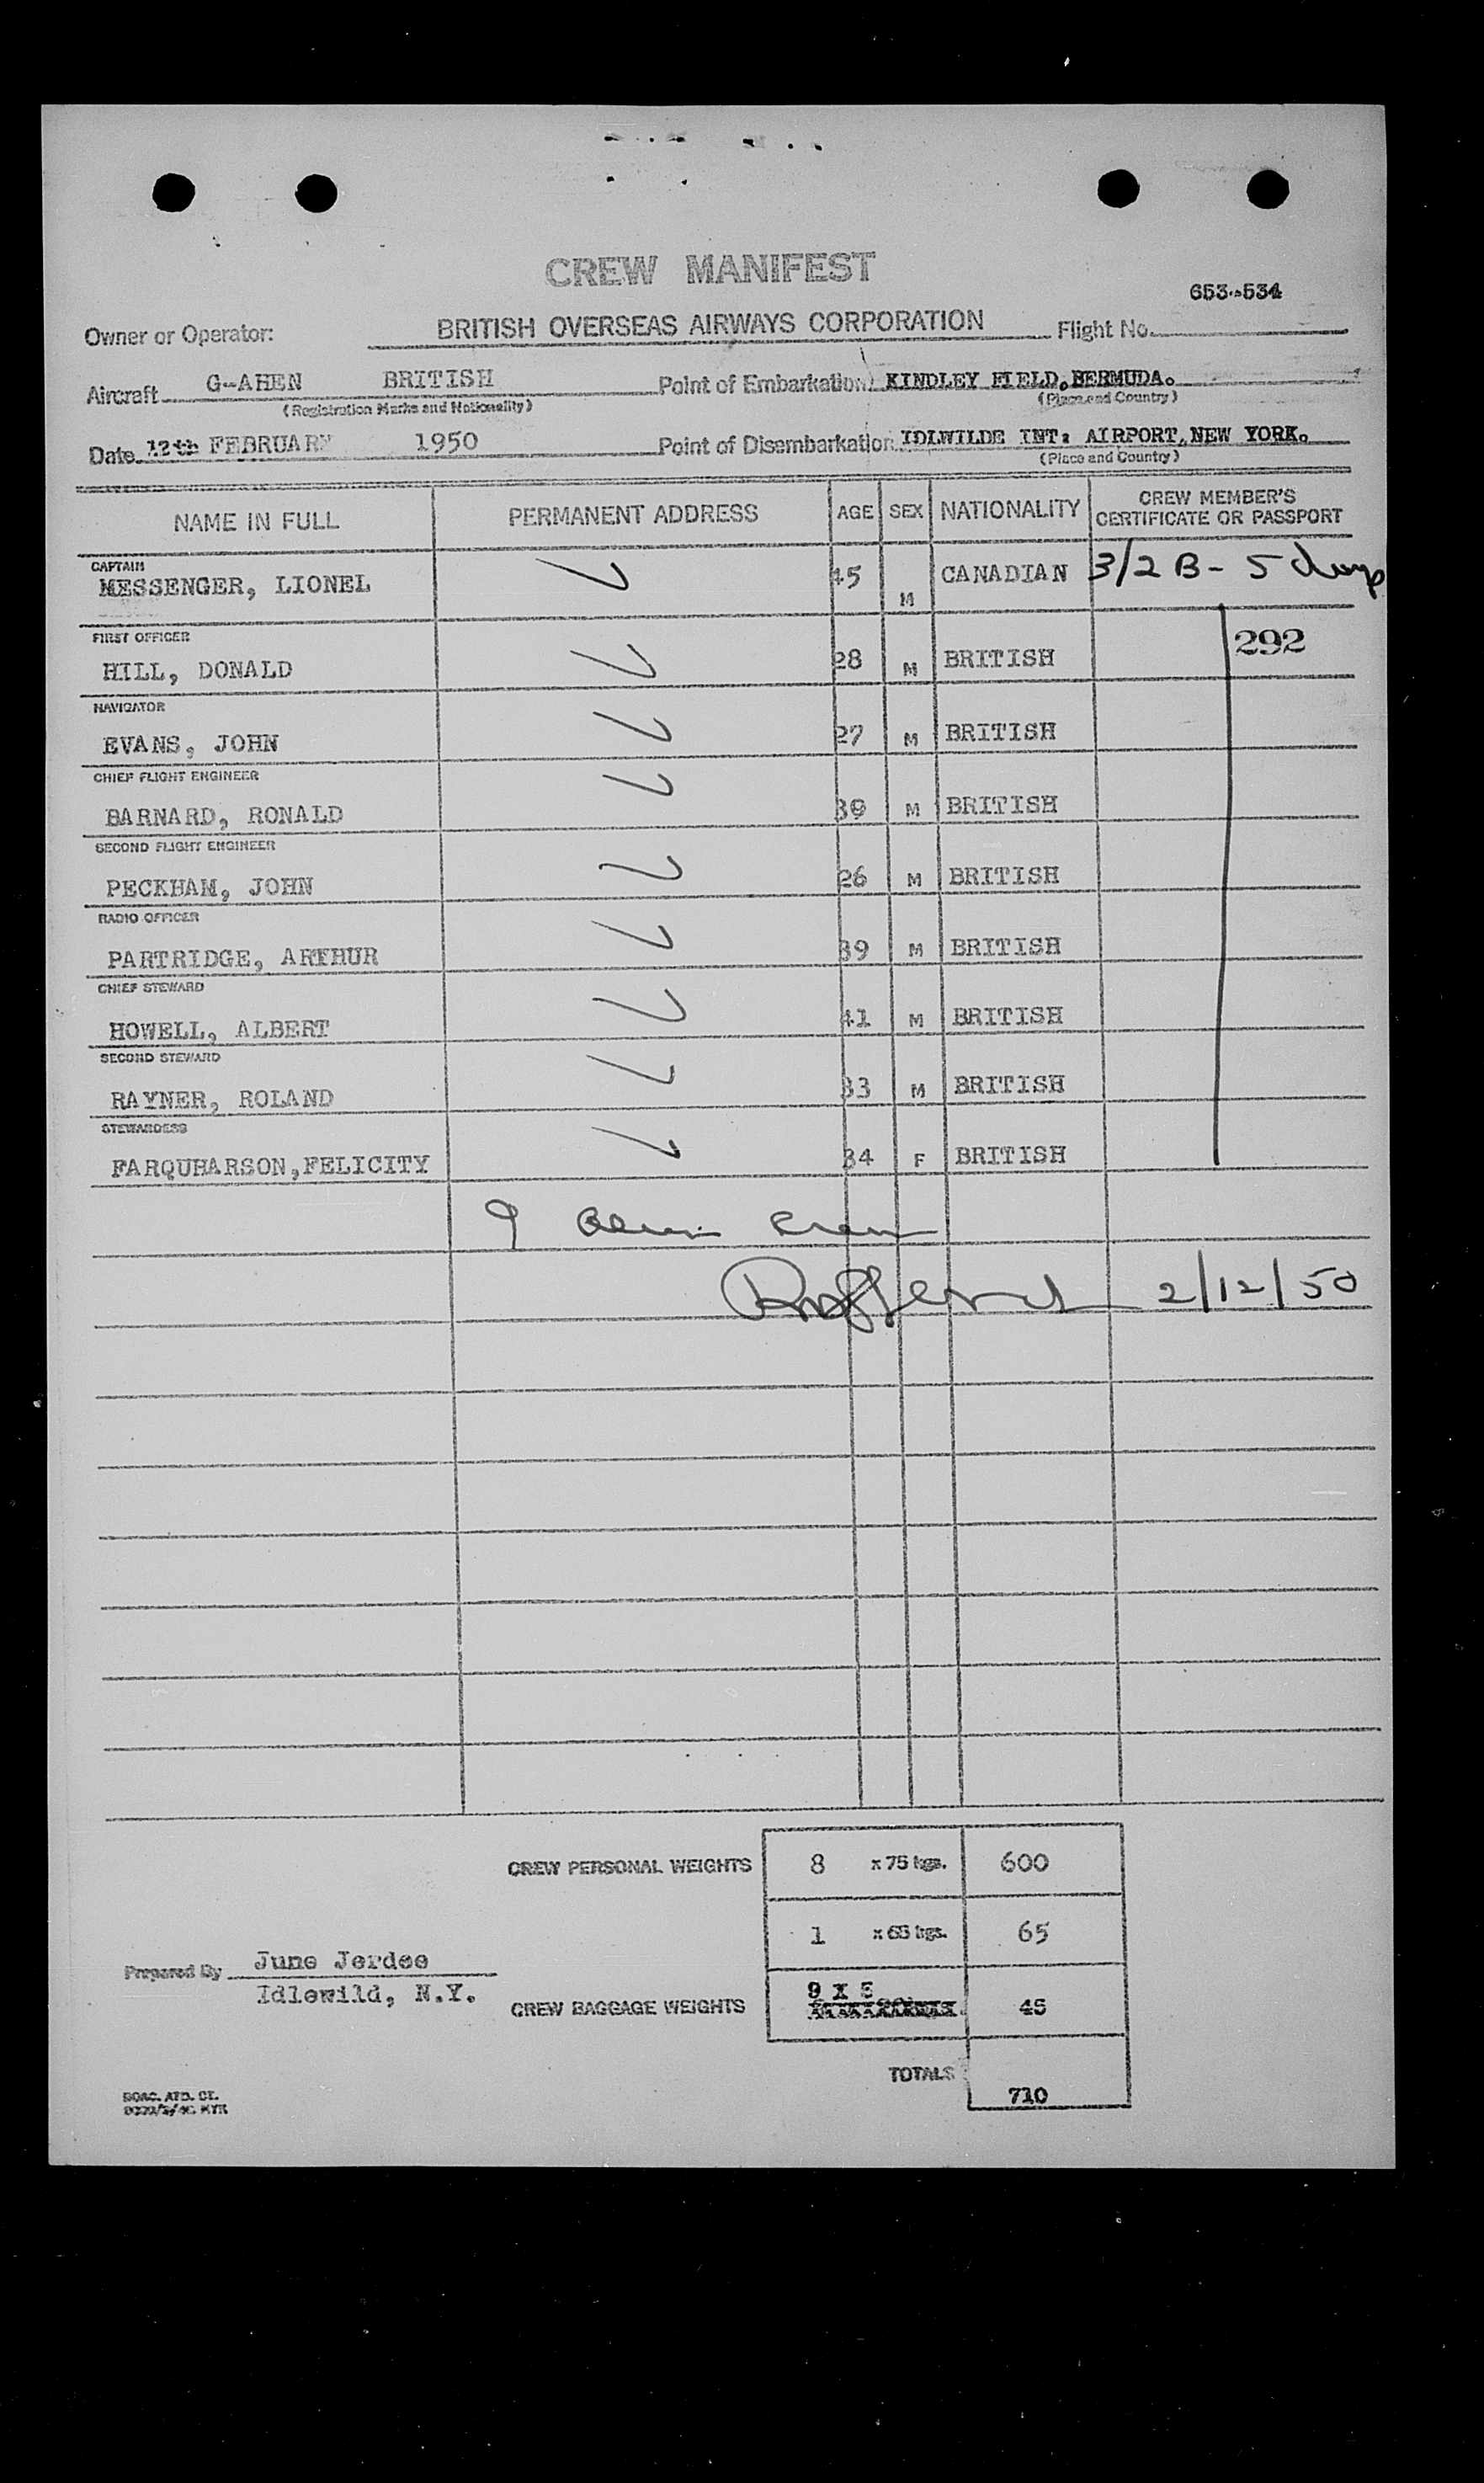 CREW MANIFEST
653--534
Owner or Operator: BRITISH OVERSEAS AIRWAYS CORPORATION Flight No.
Aircraft G-AHEN BRITISH Point of Embarkation: KINDLEY FIELD, BERMUDA.
(Registration Marks and Nationality) (Place and Country)
Date 12th FEBRUARY 1950 Point of Disembarkation IDLWILDE INT: AIRPORT, NEW YORK.
(Place and Country)
NAME IN FULL PERMANENT ADDRESS AGE SEX NATIONALITY CREW MEMBER'S CERTIFICATE OR PASSPORT
CAPTAIN
MESSENGER, LIONEL 45 M CANADIAN 3/2 B - 5 days
FIRST OFFICER 292
HILL, DONALD 28 M BRITISH
NAVIGATOR
EVANS, JOHN 27 M BRITISH
CHIEF FLIGHT ENGINEER
BARNARD, RONALD 39 M BRITISH
SECOND FLIGHT ENGINEER
PECKHAM, JOHN 26 M BRITISH
RADIO OFFICER
PARTRIDGE, ARTHUR 39 M BRITISH
CHIEF STEWARD
HOWELL, ALBERT 41 M BRITISH
SECOND STEWARD
RAYNER, ROLAND 33 M BRITISH
STEWARDESS
FARQUHARSON, FELICITY 34 F BRITISH
9 alien crew
2/12/50
CREW PERSONAL WEIGHTS 8 x 75 kgs. 600
1 x 65 kgs. 65
Prepared By June Jerdee
Idlewild, N.Y.
CREW BAGGAGE WEIGHTS 9 X 5 45
TOTALS 710
BOAC. ATD. CT.